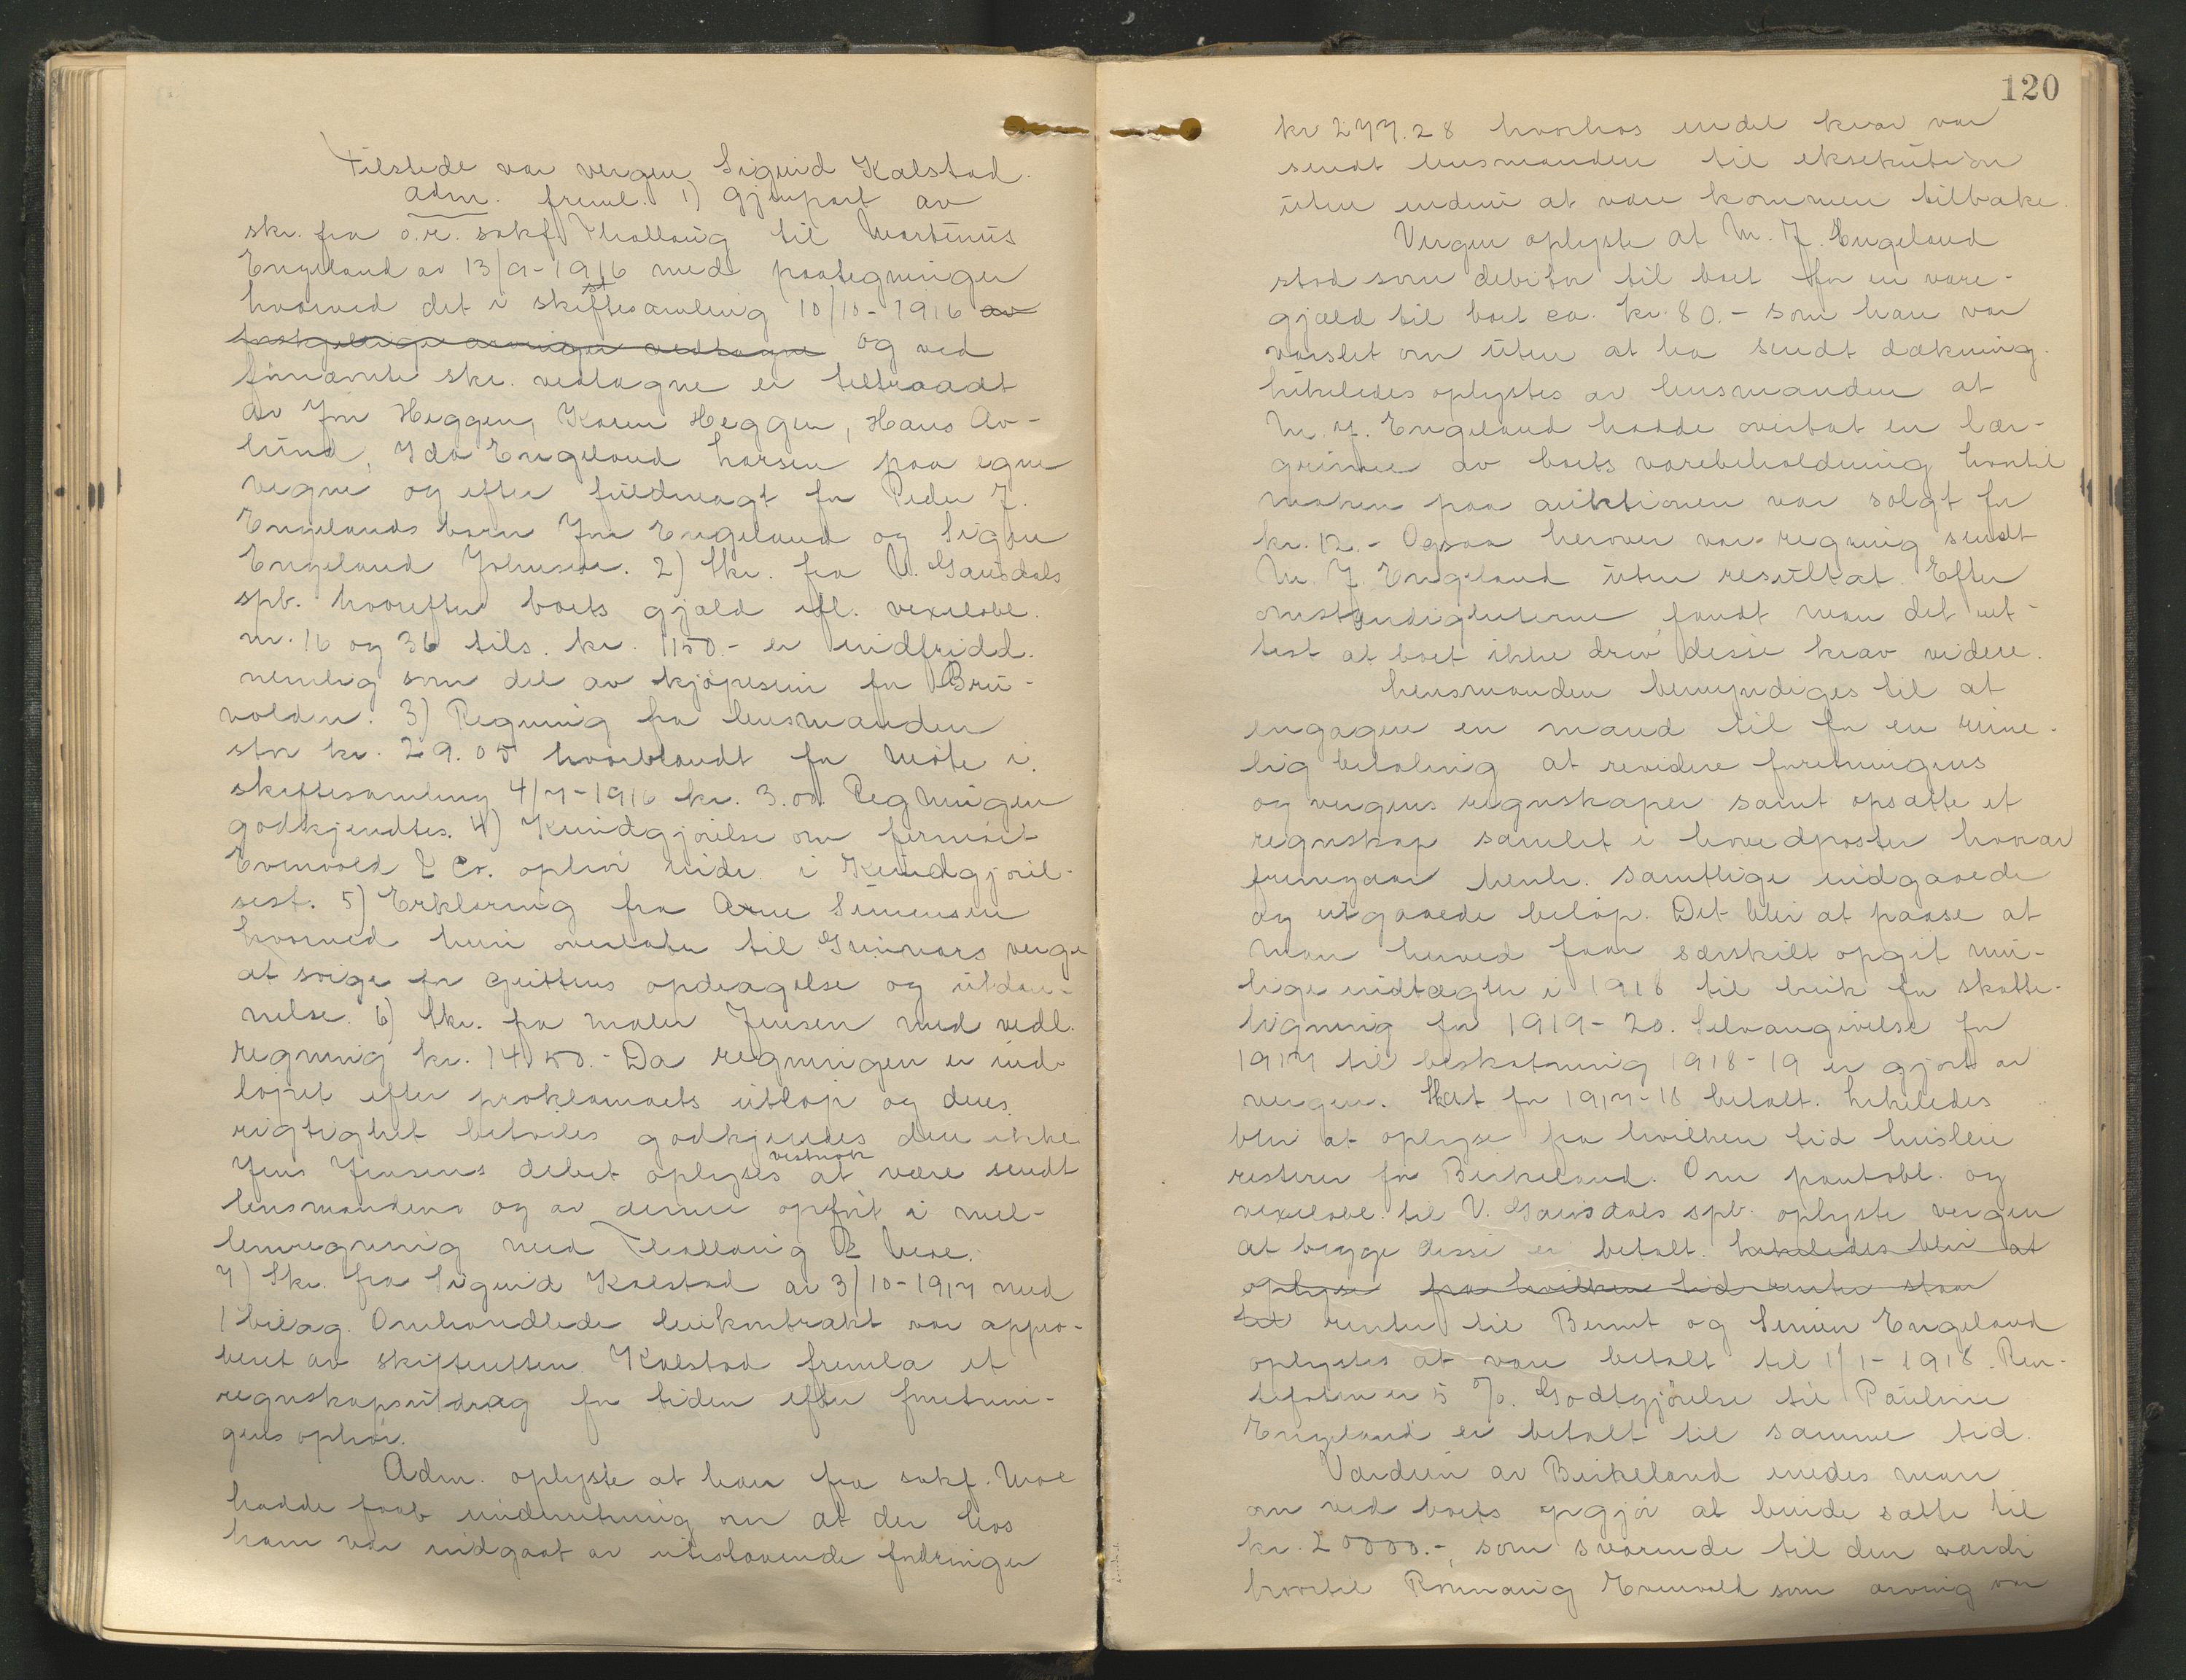 Tilstede var vergen Sigurd Kalstad.
Adm. freml. 1) Gjenpart av
skr. fra o.r. sakf. Thallaug til Martinus
Engeland av 13/9-1916 med paategninger
hvorved det i skiftesamling 10/10-1916 av
forskjellige arvinger vedtagne og ved
førnævnte skr. vedtagne er tiltraadt
av Jon Heggen, Karen Heggen, Hans Av-
lund, Ida Engeland Larsen paa egne
vegne og efter fuldmagt for Peder J.
Engelands barn Jon Engeland og Signe
Engeland Johnsen. 2) Skr. fra V. Gausdals
spb. hvorefter boets gjæld ifl. vexelobl.
nr. 16 og 36 tils. kr. 1150.- er indfridd.
nemlig som del av kjøpesum for Bru-
volden. 3) Regning fra lensmanden
stor kr. 29.05 hvorblandt for møte i
skiftesamling 4/7-1916 kr. 3.00. Regningen
godkjendtes. 4) Kundgjørelse om firmaet
Evenvold & Co. ophør indr. i Kundgjøril-
sest. 5) Erklæring fra Arne Simensen
hvorved hun overlater til Gunnars verge
at sørge for guttens opdragelse og utdan-
nelse. 6) Skr. fra maler Jensen med vedl.
regning kr. 1450.- Da regningen er ind-
løpet efter proklamaets utløp og dens
rigtighet betviles godkjendes den ikke.
Jens Jensens debet oplyses vistnok at være sendt
lensmanden og av denne opført i mel-
lemregning med Thallaug & Moe.
7) Skr. fra Sigurd Kalstad av 3/10-1917 med
1 bilag. Omhandlede leiekontrakt var appro-
beret av skifteretten. Kalstad fremla et
regnskapsutdrag for tiden efter forretnin-
gens ophør.
Adm. oplyste at han fra sakf. Moe
hadde faat underretning om at der hos
ham var indgaat av utestaaende fordringer
120
kr 277.28 hvorhos endel krav var
sendt lensmanden til eksekution
uten endnu at være kommen tilbake.
Vergen oplyste at M. J. Engeland
stod som debitor til boet for en vare-
gjæld til boet ca. kr. 80.- som han var
varslet om uten at ha sendt dækning.
Likeledes oplystes av lensmanden at
M. J. Engeland hadde overtat en lær-
grime av boets varebeholdning hvortil
maken paa auktionen var solgt for
kr. 12.- Ogsaa herover var regning sendt
M. J. Engeland uten resultat. Efter
omstændigheterne fandt man det ret-
test at boet ikke drev disse krav videre.
Lensmanden bemyndiges til at
engagere en mand til for en rime-
lig betaling at revidere forretningens
og vergens regnskaper samt opsætte et
regnskap samlet i hovedposter hvorav
fremgaar henh. samtlige indgaaede
og utgaaede beløp. Det blir at paase at
man herved faar særskilt opgit mu-
lige indtægter i 1918 til bruk for skatte-
ligning for 1919-20. Selvangivelse for
1917 til beskatning 1918-19 er gjort av
vergen. Skat for 1917-18 betalt. Likeledes
blir at oplyse fra hvilken tid husleie
resterer for Birkeland. Om pantobl. og
vexelobl. til V. Gausdals spb. oplyste vergen
at begge disse er betalt. Likeledes blir at
oplyse fra hvilken tid renter staar
til renter til Bernt og Simen Engeland
oplystes at være betalt til 1/1-1918. Ren-
tefoten er 5 %. Godtgjørelse til Pauline
Engeland er betalt til samme tid.
Værdien av Birkeland enedes man
om ved boets opgjør at burde sætte til
kr. 20000.-, som svarende til den værdi
hvortil Rønnaug Evenvold som arving var